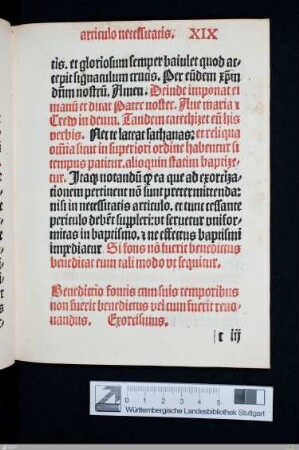 articulo necessitatis. XIX
tis. et gloriosum semper baiulet quod ac-
cepit signaculum crucis. Per eūdem xp̄m
dn̄m nostrū. Amen. Deinde imponat ei
manū et dicat Pater noster. Aue maria ⁊
Credo in deum. Tandem catechizet eū his
verbis. Nec te lateat sathanas: et reliqua
om̄ia sicut in superiori ordine habentur si
tempus patitur. alioquin statim baptize-
tur. Itaqꝫ notandū ꝙ ea que ad exorciza-
tionem pertinent nō sunt pretermittenda:
nisi in necessitatis articulo. et tunc cessante
periculo debēt suppleri: vt seruetur vnifor-
mitas in baptismo. ⁊ ne effectus baptismi
impediatur Si fons nō fuerit benedictus
benedicat eum tali modo vt sequitur.
Benedictio fontis cum suis temporibus
non fuerit benedictus vel cum fuerit reno-
uandus. Exorcismus.
c iij
cm 0 1 2 3 4 5
Württembergische Landesbibliothek Stuttgart